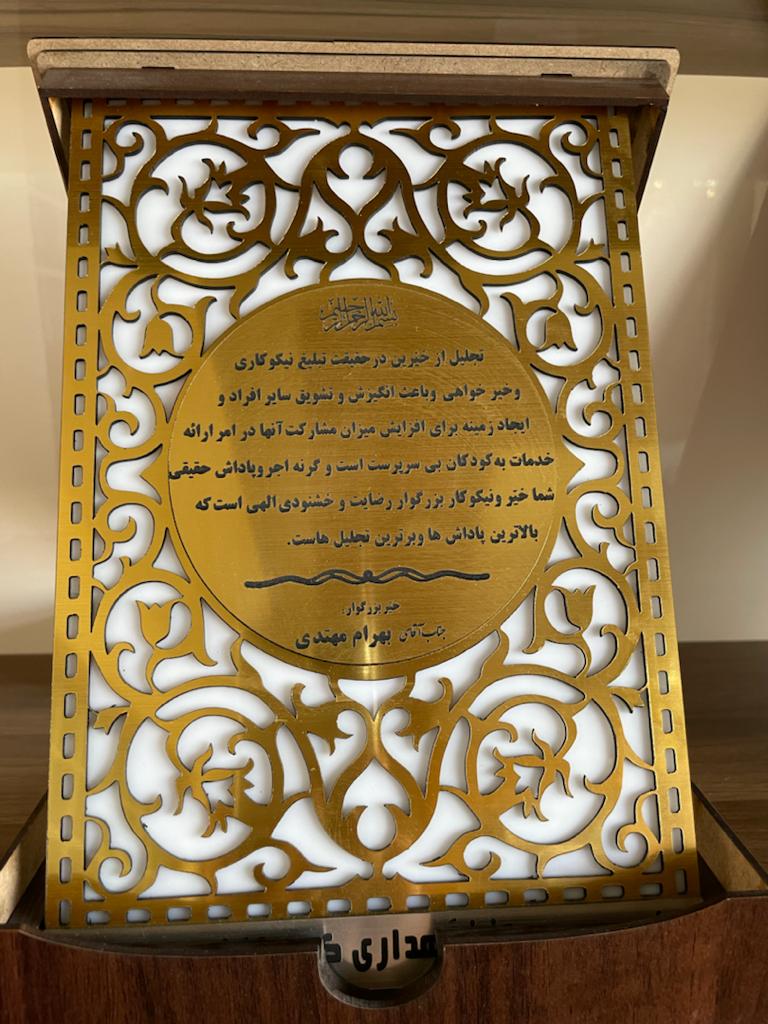 بسم الله الرحمن الرحیم
تجلیل از خیّرین درحقیقت تبلیغ نیکوکاری
وخیر خواهی وباعث انگیزش و تشویق سایر افراد و
ایجاد زمینه برای افزایش میزان مشارکت آنها در امر ارائه
خدمات به کودکان بی سرپرست است و گرنه اجر وپاداش حقیقی
شما خیّر ونیکوکار بزرگوار رضایت و خشنودی الهی است که
بالاترین پاداش ها وبرترین تجلیل هاست.
خیر بزرگوار:
جناب آقای بهرام مهتدی